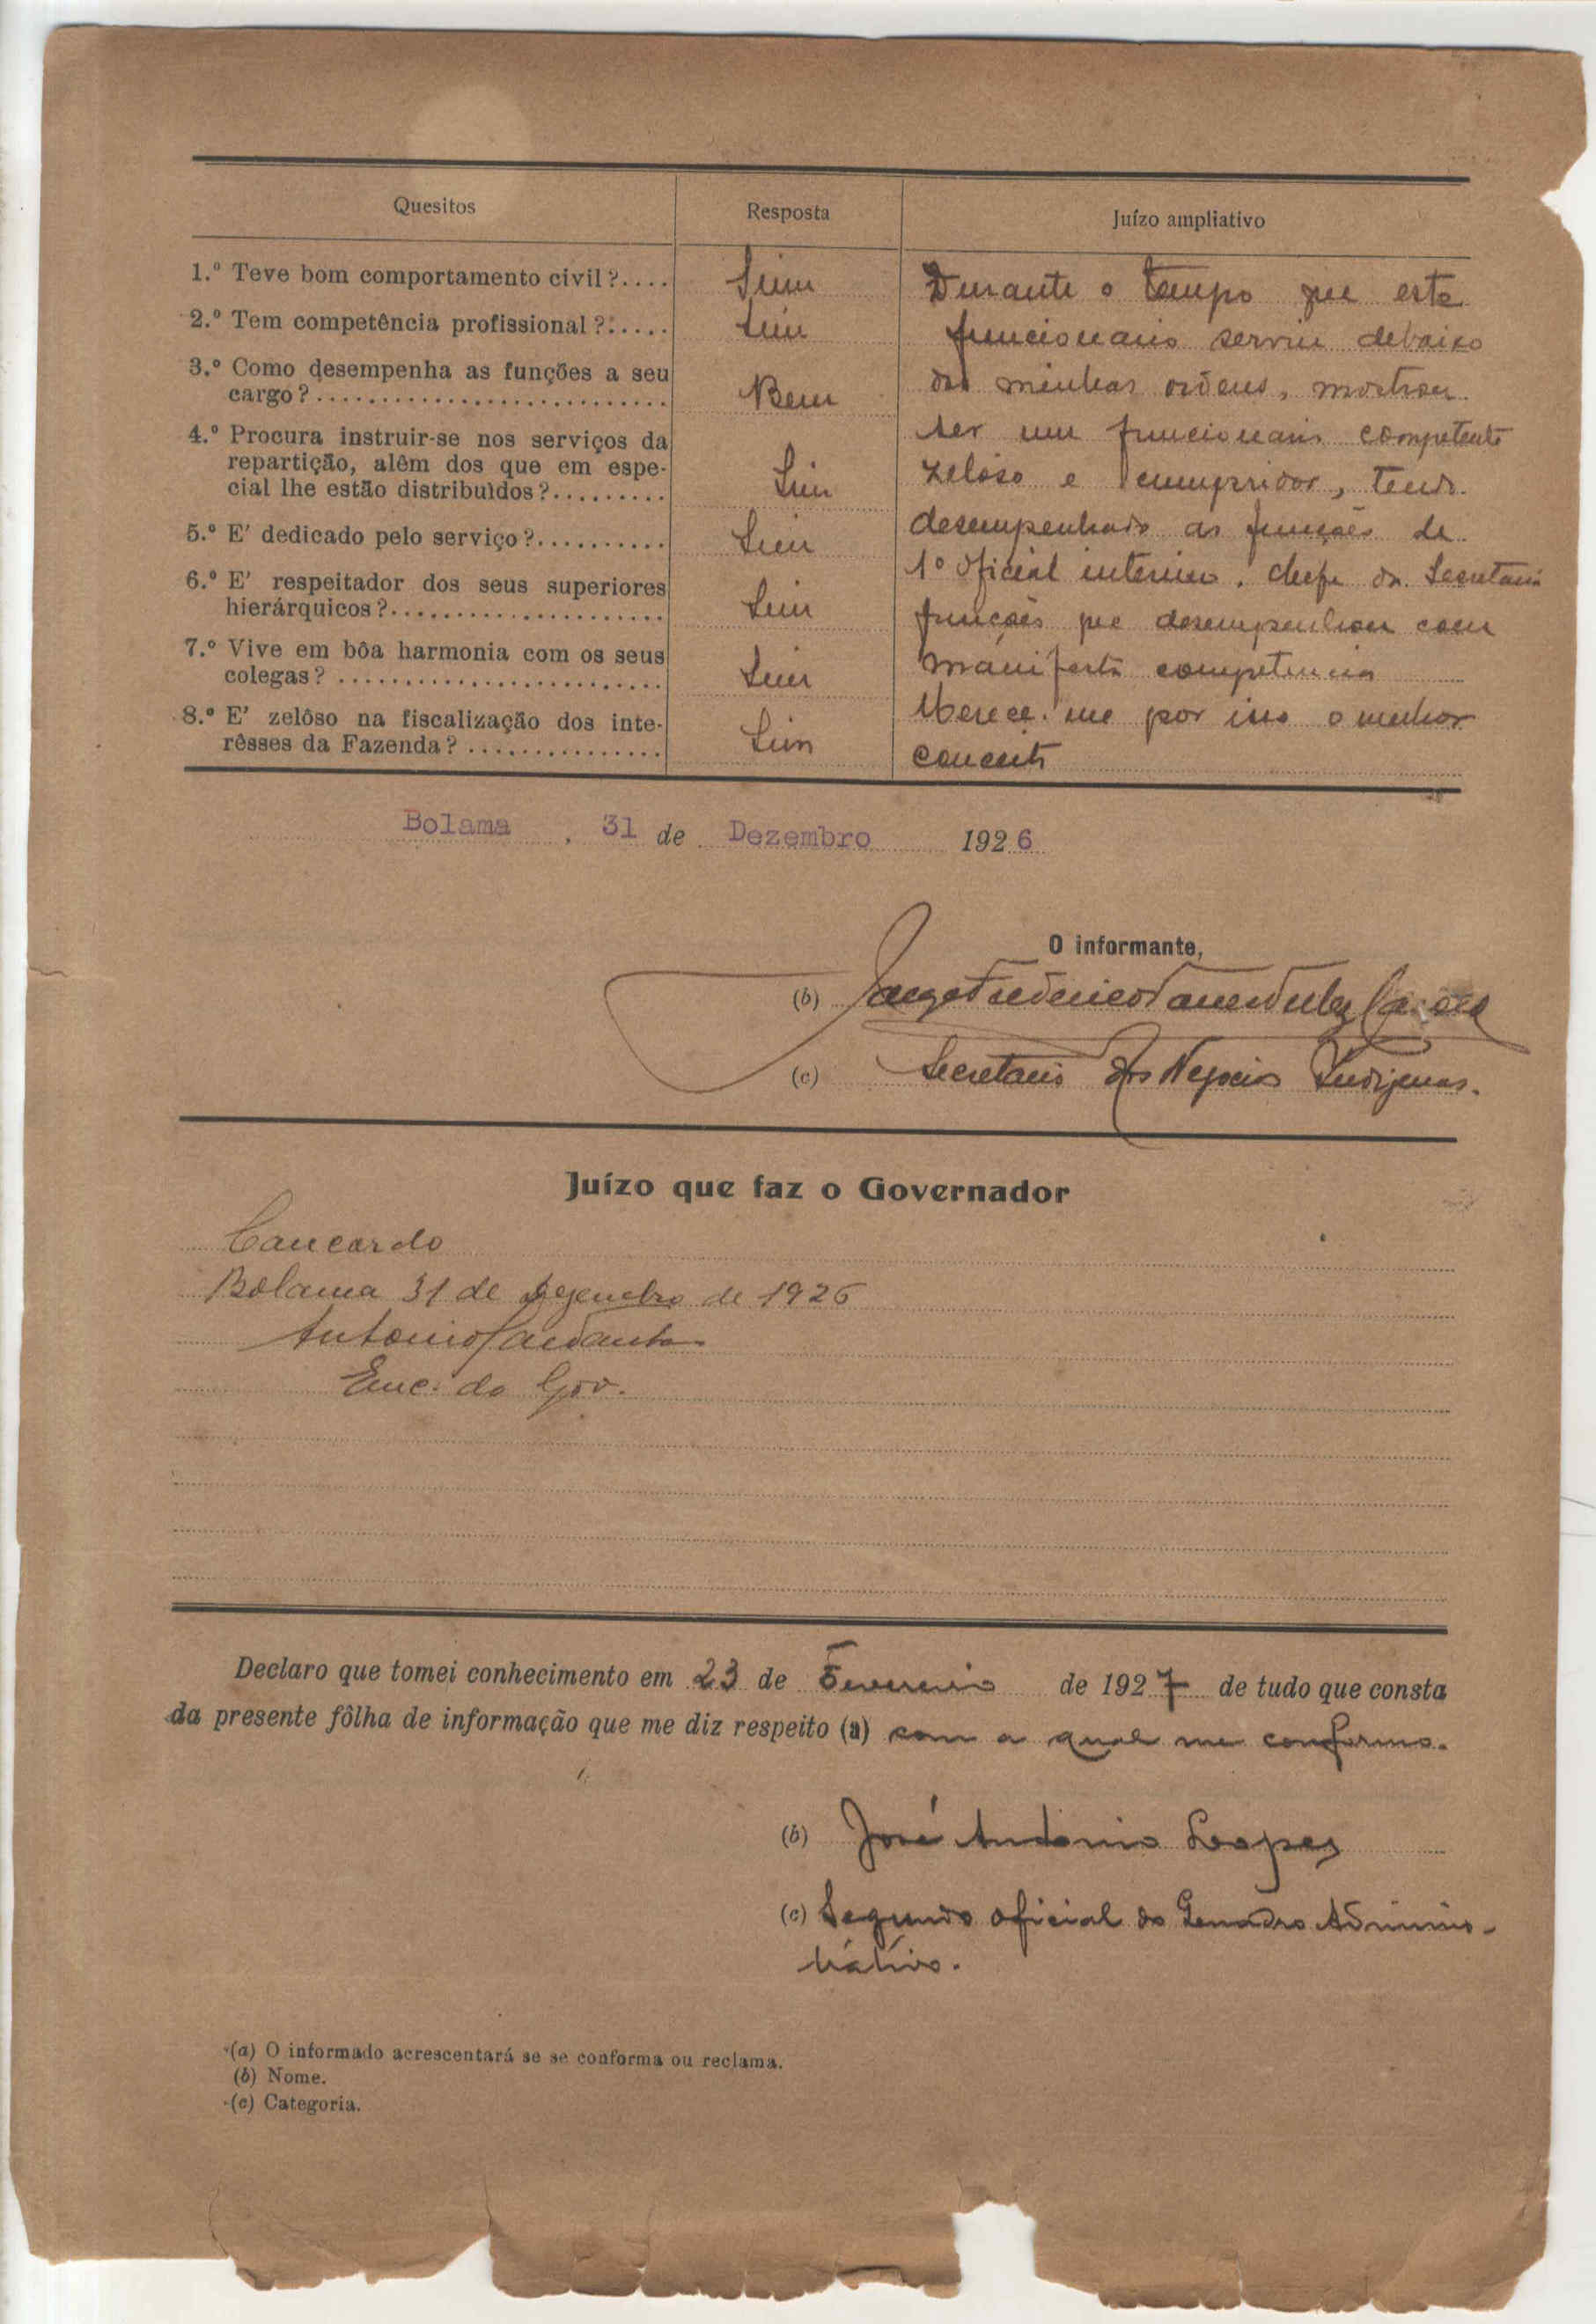 Quesitos
Resposta
Juízo ampliativo
1.º Teve bom comportamento civil?....
Sim
2.º Tem competência profissional?.....
Sim
3.º Como desempenha as funções a seu
cargo?...........................
Bem
4.º Procura instruir-se nos serviços da
repartição, alêm dos que em espe-
cial lhe estão distribuìdos?.........
Sim
5.º E' dedicado pelo serviço?..........
Sim
6.º E' respeitador dos seus superiores
hierárquicos?.....................
Sim
7.º Vive em bôa harmonia com os seus
colegas? .........................
Sim
8.º E' zelôso na fiscalização dos inte-
rêsses da Fazenda? ...............
Sim
Durante o tempo que este
funcionario serviu debaixo
das minhas ordens, mostrou
ser um funcionario competente
zeloso e cumpridor, tendo
desempenhado as funções de
1º oficial interino, chefe da Secretaria
funções que desempenhou com
manifesta competencia
Merece-me por isso o melhor
conceito
Bolama, 31 de Dezembro 1926
O informante,
(b) Jorge Frederico Velez Caroço
(c) Secretario dos Negocios Indigenas.
Juízo que faz o Governador
Concordo
Bolama 31 de Dezembro de 1926
Antonio
Enc. do Gov.
Declaro que tomei conhecimento em 23 de Fevereiro de 1927 de tudo que consta
da presente fôlha de informação que me diz respeito (a) com a qual me conformo.
(b) José António Lopes
(c) Segundo oficial do Quadro Adminis-
trátivo.
(a) O informado acrescentará se se conforma ou reclama.
(b) Nome.
(c) Categoria.